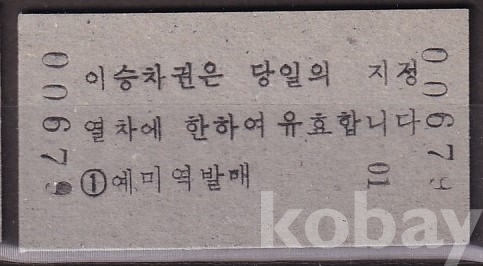 이승차권은 당일의 지정
열차에 한하여 유효합니다
①예미역발매
01
0067
0067
kobay